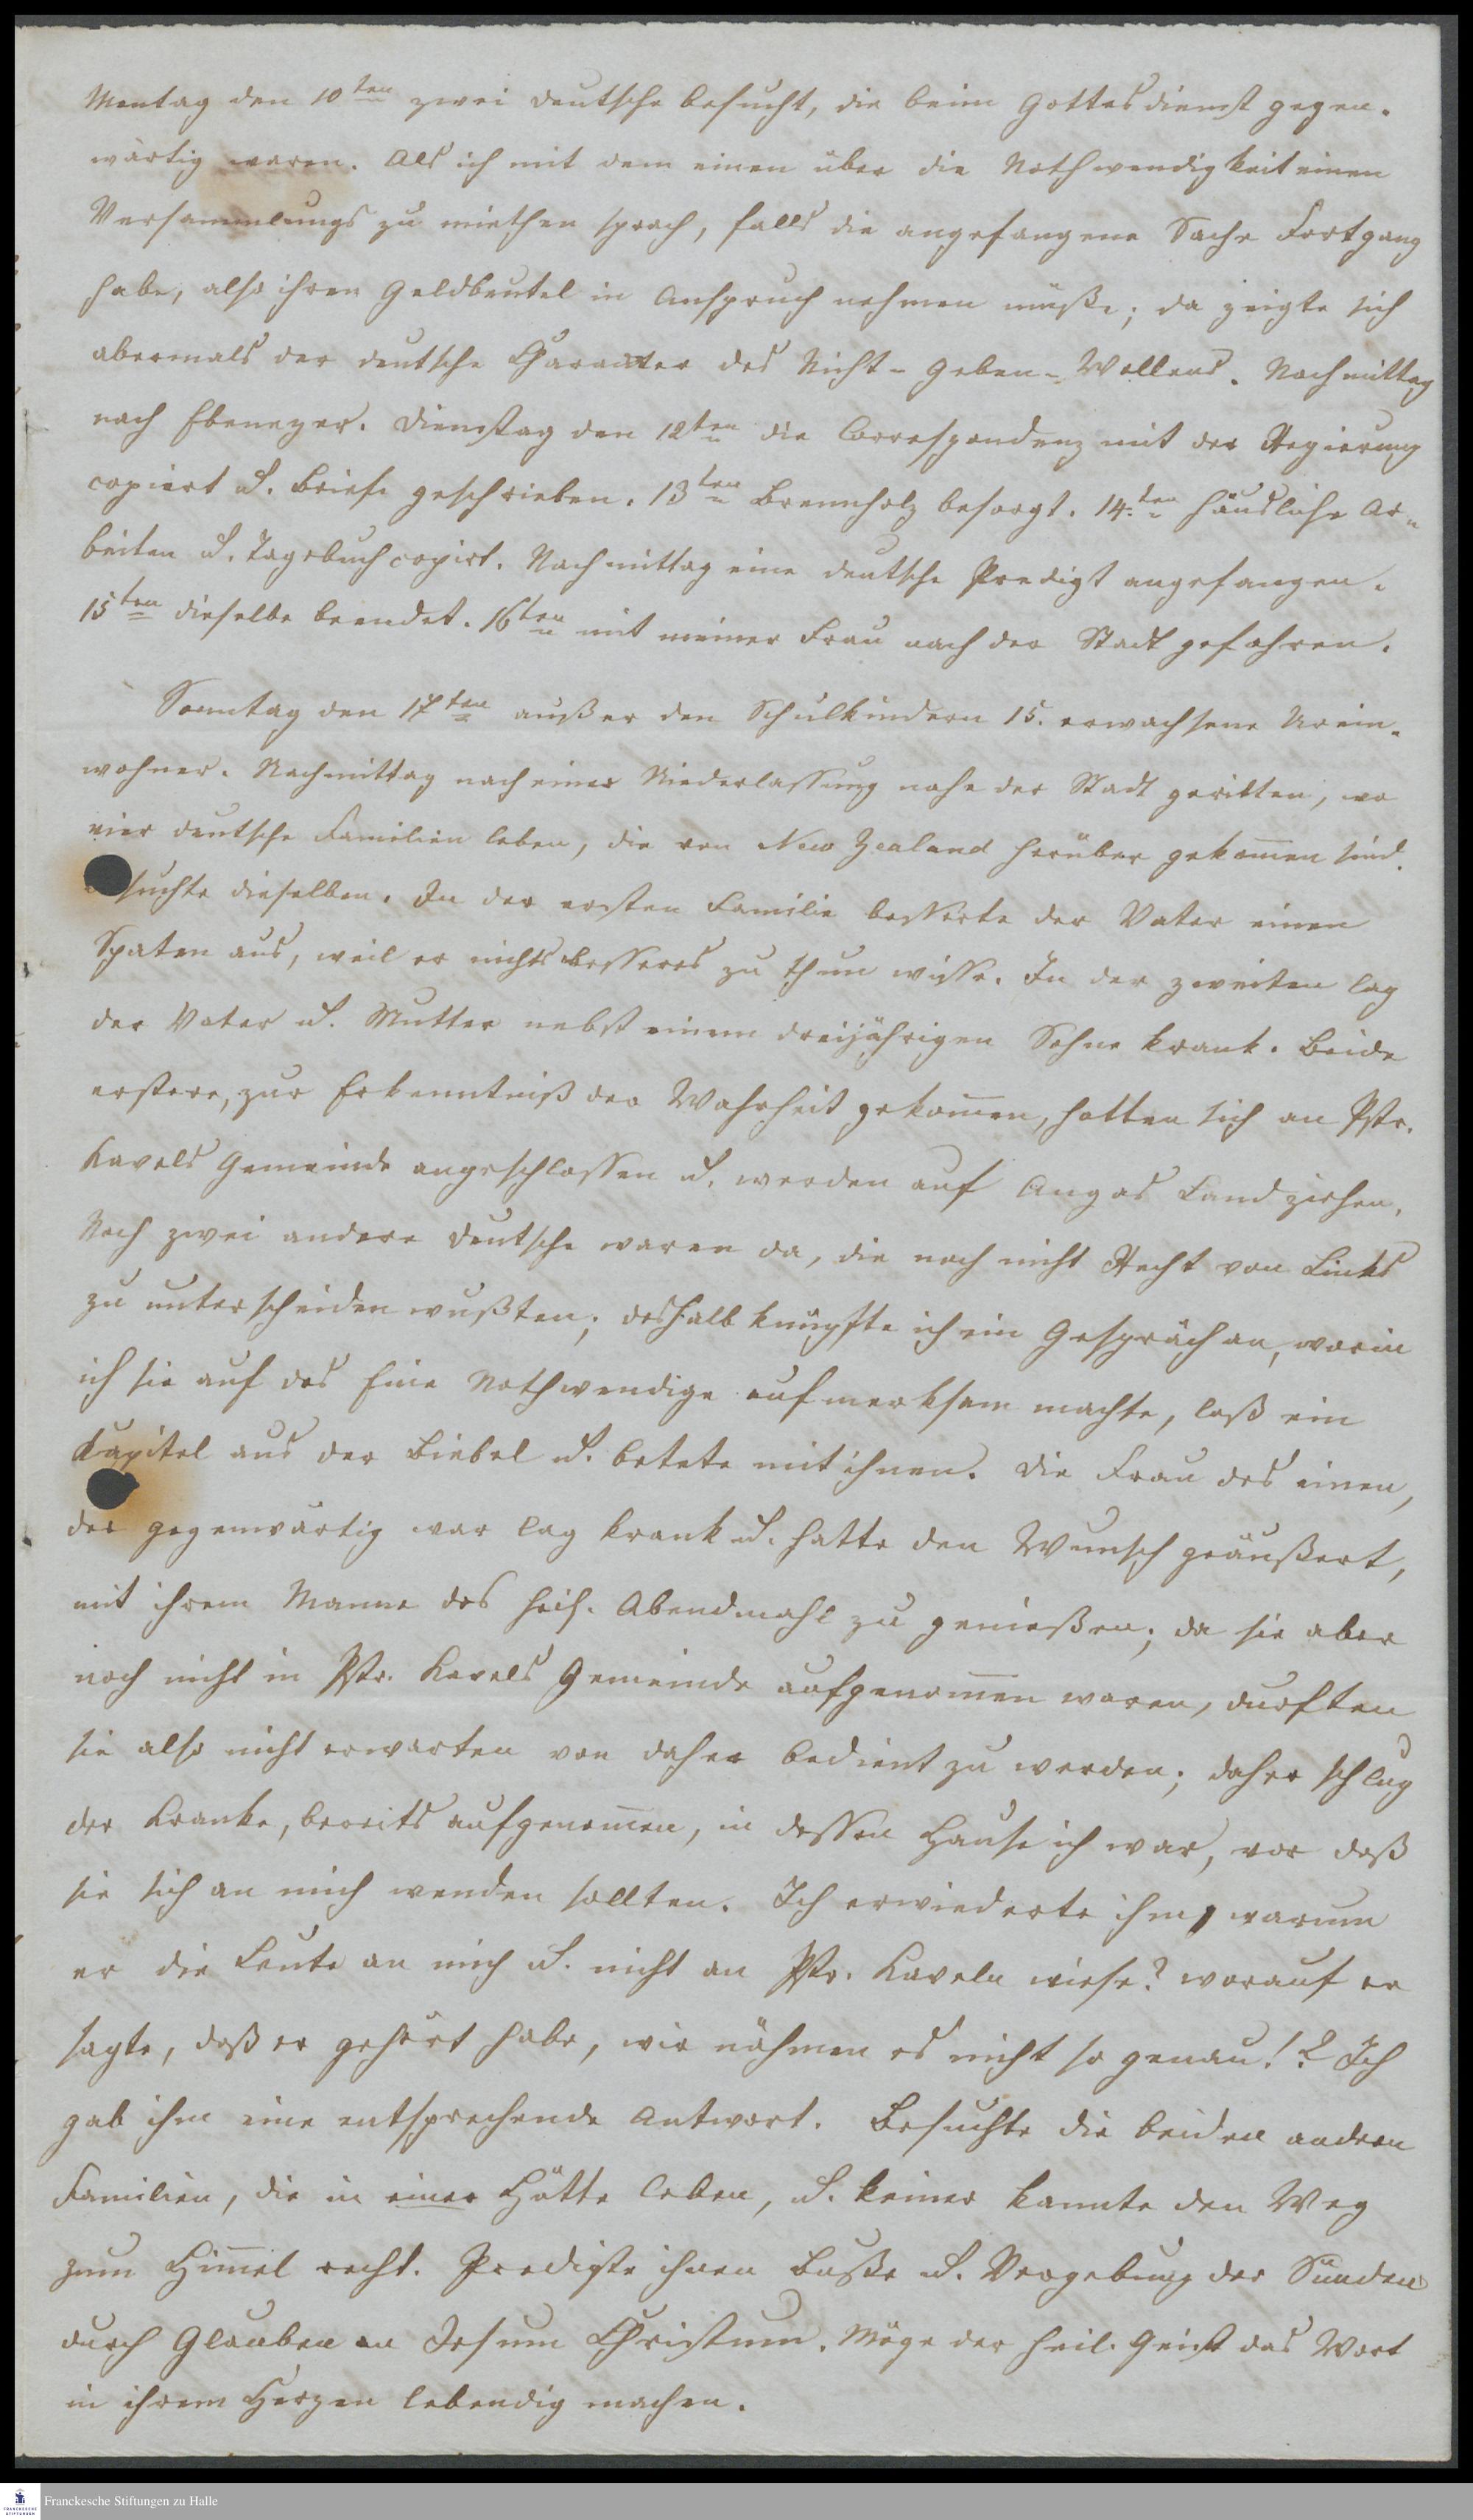 Montag den 10ten zwei Deutsche besucht, die beim Gottesdienst gegen-
wärtig waren. Als ich mit dem einen über die Nothwendigkeit einen
Versammlungs zu miethen sprach, falls die angefangene Sache Fortgang
habe, also ihren Geldbeutel in Anspruch nehmen müße; da zeigte sich
abermals der deutsche Charackter des Nicht-Geben-Wollens. Nachmittag
nach Ebenezer. Dienstag den 12ten die Correspondenz mit der Regierung
copiert u. Briefe geschrieben. 13ten Brennholz besorgt. 14ten häusliche Ar-
beiten u. Tagebuch copirt. Nachmittag eine deutsche Predigt angefangen.
15ten dieselbe beendet. 16ten mit meiner Frau nach der Stadt gefahren.
Sonntag den 17ten außer den Schulkindern 15. erwachsene Urein-
wohner. Nachmittag nach einer Niederlassung nahe der Stadt geritten, wo
vier deutsche Familien leben, die von New Zealand herüber gekom̄en sind.
suchte dieselben. In der ersten Familie besserte der Vater einen
Spaten aus, weil er nichts besseres zu thun wisse. In der zweiten lag
der Vater u. Mutter nebst einem dreijährigen Sohne krank. Beide
erstere, zur Erkenntniß der Wahrheit gekom̄en, hatten sich an Pstr.
Kavels Gemeinde angeschlossen u. werden auf Angas Land ziehen.
Noch zwei andere Deutsche waren da, die noch nicht Recht von Links
zu unterscheiden wußten; deshalb knüpfte ich ein Gespräch an, worin
ich sie auf das Eine Nothwendige aufmerksam machte, laß ein
Kapitel aus der Biebel u. betete mit ihnen. Die Frau des einen,
der gegenwärtig war lag krank u. hatte den Wunsch geäußert,
mit ihrem Manne das heil. Abendmahl zu genießen; da sie aber
noch nicht in Pstr. Kavels Gemeinde aufgenom̄en waren, durften
sie also nicht erwarten von daher bedient zu werden; daher schlug
der Kranke, bereits aufgenom̄en, in dessen Hause ich war, vor daß
sie sich an mich wenden sollten. Ich erwiederte ihm, warum
er die Leute an mich u. nicht an Pstr. Kaveln wiese? worauf er
sagte, daß er gehört habe, wir nähmen es nicht so genau!? Ich
gab ihm eine entsprechende Antwort. Besuchte die beiden andern
Familien, die in einer Hütte leben, u. keiner kannte den Weg
zum Him̄el recht. Predigte ihnen Buße u. Vergebung der Sünden
durch Glauben an Jesum Christum. Möge der heil. Geist das Wort
in ihrem Herzen lebendig machen.
Franckesche Stiftungen zu Halle